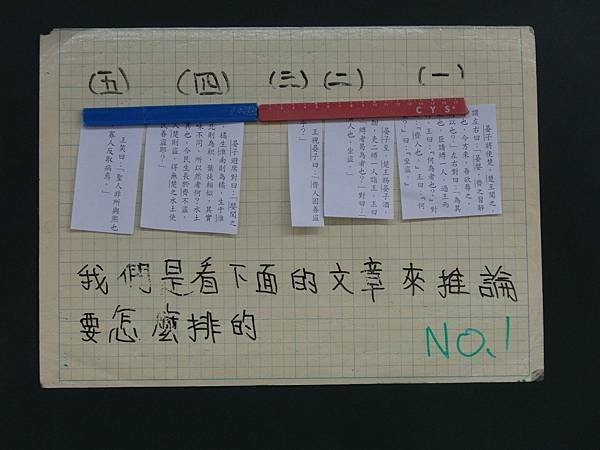 (五) (四) (三) (二) (一)
晏子將使楚。楚王聞之，
謂左右曰：「晏嬰，齊之習辭
也，今方來，吾欲辱之，
以也？」左右對曰：「為其
也，臣請縛一人，過王而
王曰：『何為者也？』對
『齊人也。』王曰：『何
？』曰：『坐盜。』」
晏子至，楚王賜晏子酒，
酣，吏二縛一人詣王。王曰
縛者曷為者也？」對曰：
人也，坐盜。」
王視晏子曰：「齊人固善盜
乎？」
晏子避席對曰：「嬰聞之，
橘生淮南則為橘，生于淮
北則為枳，葉徒相似，其實
味不同。所以然者何？水土
異也。今民生長於齊不盜，
入楚則盜，得無楚之水土使
民善盜耶？」
王笑曰：「聖人非所與熙也
寡人反取病焉。」
我們是看下面的文章來推論
要怎麼排的
NO.1